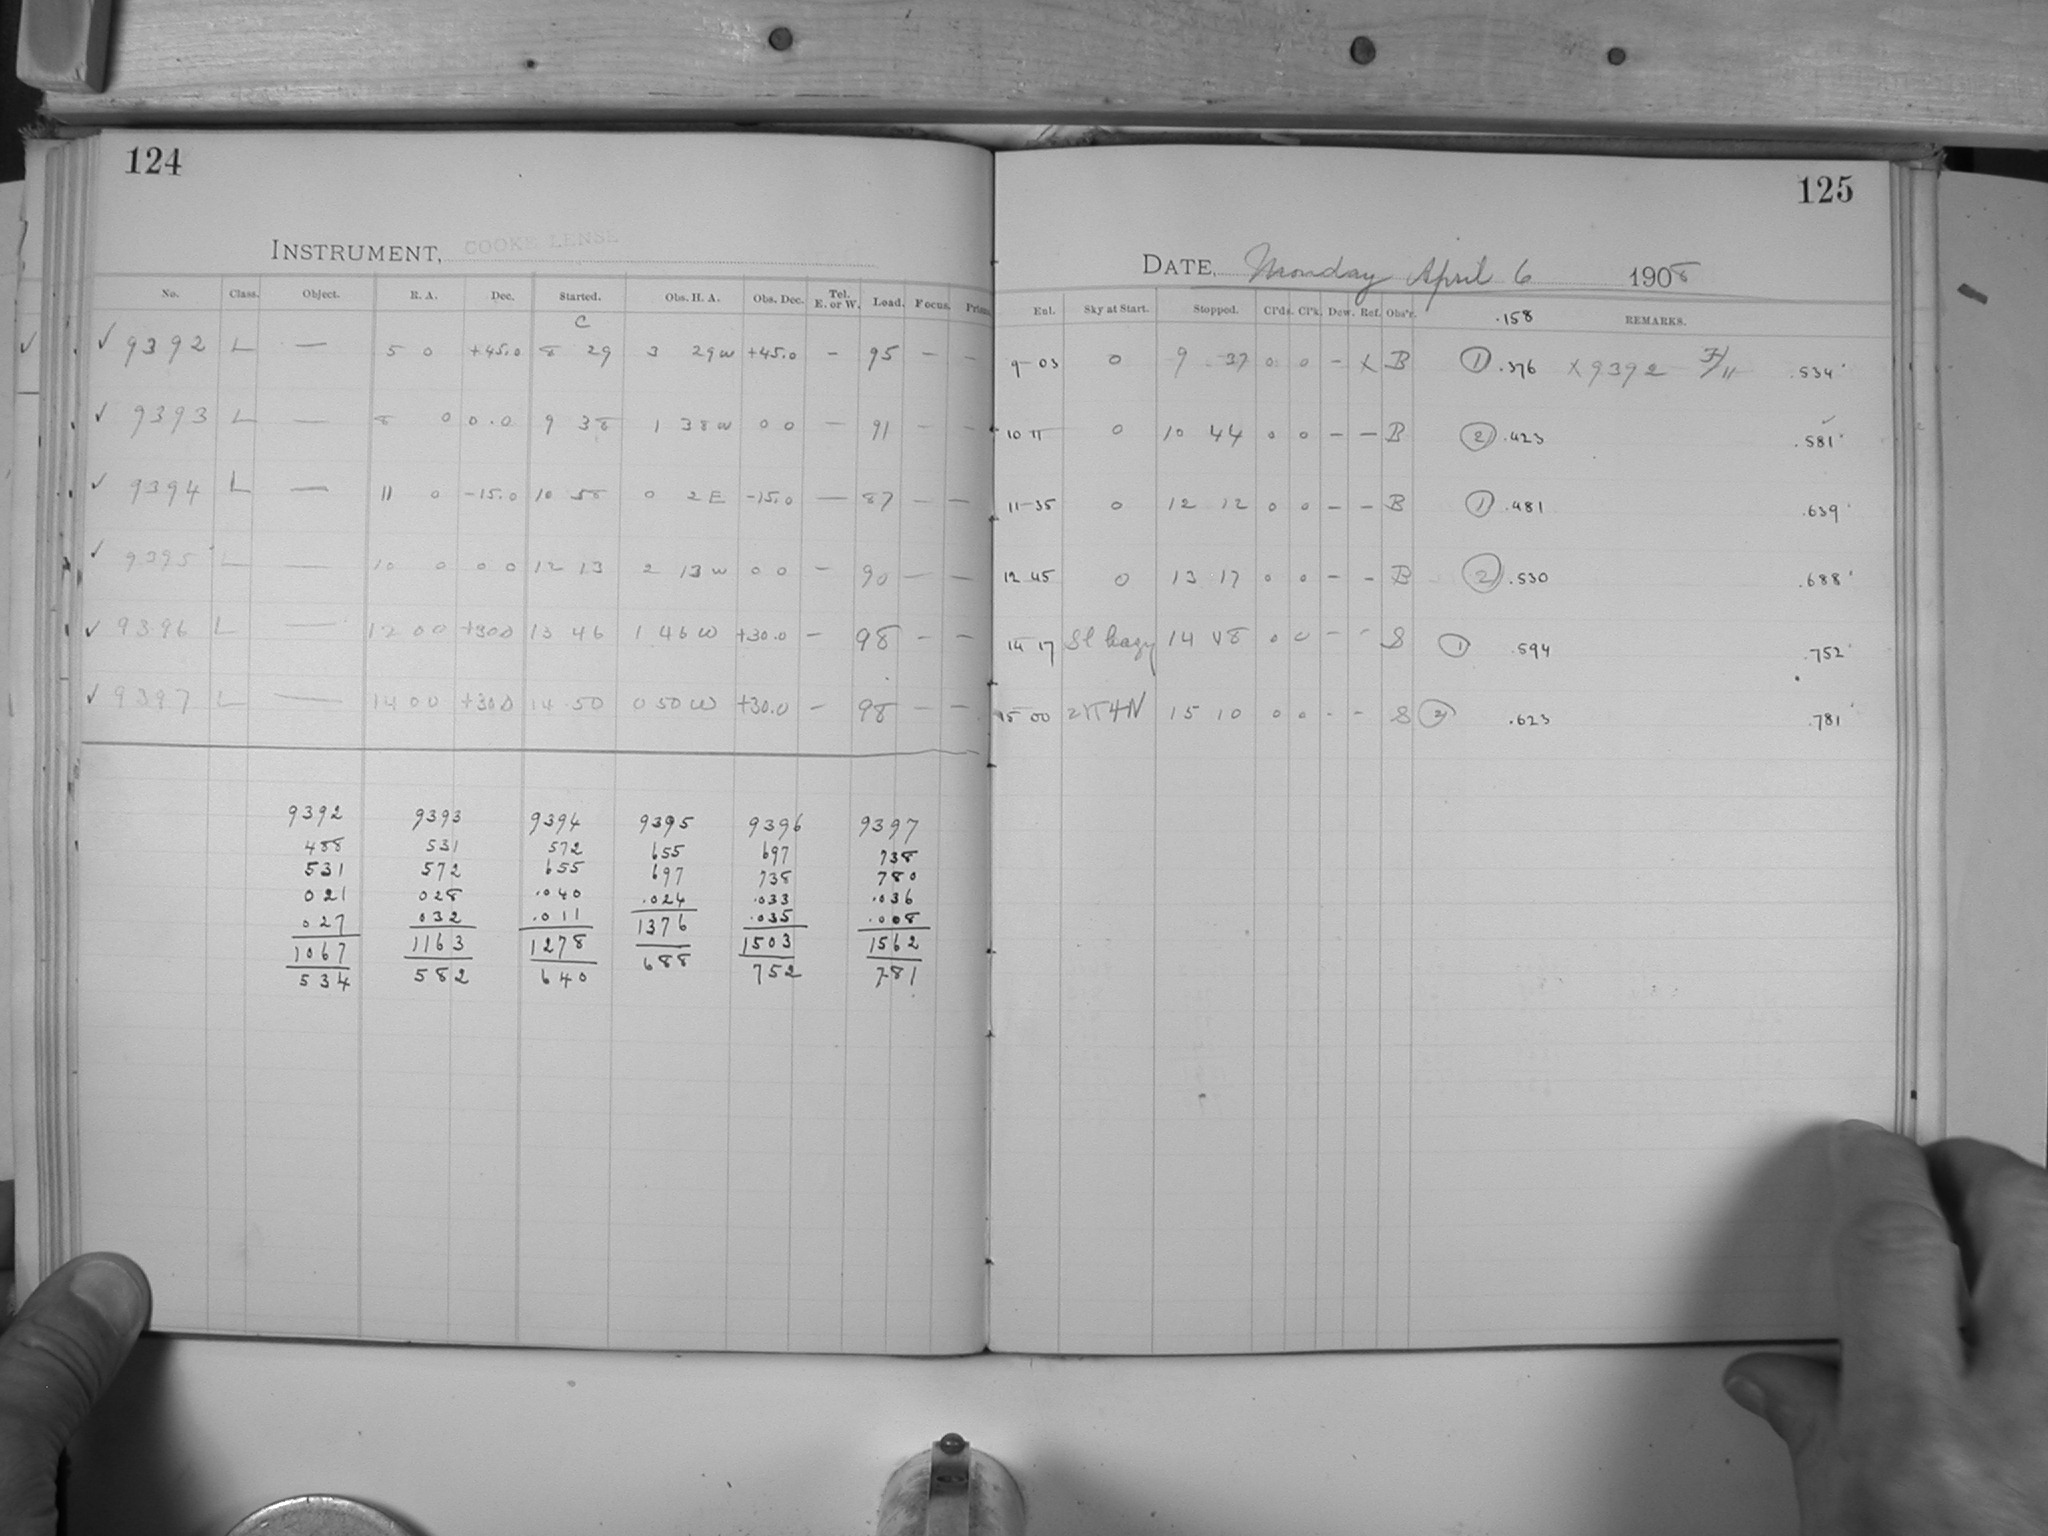 124
INSTRUMENT, COOKE LENSE
No. Class. Object. R. A. Dec. Started. Obs. H. A. Obs. Dec. Tel. E. or W. Lead. Focus.
C
✓ 9392 L — 5 0 +45.0 8 29 3 29 W +45.0 - 95 - -
✓ 9393 L — 8 0 0.0 9 38 1 38 W 0 0 — 91 - -
✓ 9394 L — 11 0 -15.0 10 58 0 2 E -15.0 — 87 - —
✓ 9395 L — 10 0 0 0 12 13 2 13 W 0 0 — 90 — —
✓ 9396 L — 12 00 +30.0 13 46 1 46 W +30.0 - 98 - -
✓ 9397 L — 14 00 +30.0 14 50 0 50 W +30.0 - 98 - -
9392 9393 9394 9395 9396 9397
488 531 572 655 697 738
531 572 655 697 738 780
021 028 .040 .024 .033 .036
027 032 .011 1376 .035 .008
1067 1163 1278 688 1503 1562
534 582 640 752 781
125
DATE, Monday April 6 1908
Enl. Sky at Start. Stopped. Cl'ds. Cl'k. Dew. Ref. Obs'r. .158 REMARKS.
9-03 0 9 37 0 0 - X B ① .376 X 9392 .534
10 11 0 10 44 0 0 - - B ② .423 .581
11-35 0 12 12 0 0 - - B ① .481 .639
12 45 0 13 17 0 0 - - B ② .530 .688
14 17 Sl hazy 14 48 0 0 - - S ① .594 .752
15 00 15 10 0 0 - - S ② .623 .781